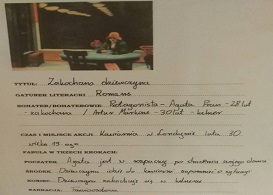 TYTUŁ: Zakochana dziewczyna
GATUNEK LITERACKI Romans
BOHATER/BOHATEROWIE: Protagonista - Agata - 28 lat
- zakochana / Artur - 30 lat - kelner
CZAS I MIEJSCE AKCJI Kawiarnia w Londynie lata 30.
wieku
FABUŁA W TRZECH KROKACH:
POCZĄTEK Agata jest w rozpaczy po
ŚRODEK Dziewczyna idzie do kawiarni zapomnieć o
KONIEC Dziewczyna zakochuje się w kelnerze
NARRACJA